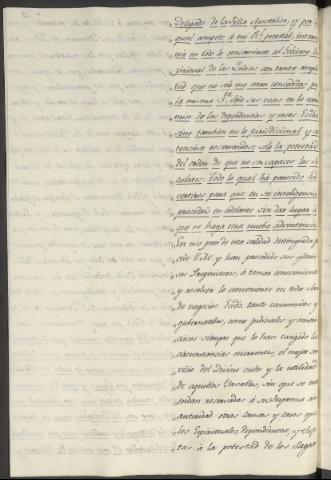 Delegado de la Silla Apostolica, y por
qual compete à mi Rl. potestad, interve
nir en todo lo concerniente al Gobierno Es
piritual de las Indias con tanta ampli
tud que no solo me estan concedidas por
la misma Sta. Sede sus veces en lo econo
mico de las dependencias y cosas Ecćas.
sino tambien en lo jurisdiccional y con
tencioso reservandose solo la potestad
del orden de que no son capaces los Se
culares: Todo lo qual ha parecido ad
vertiros para que en su inteligencia
procedais en adelante sin dar lugar à
que se haga otra nueba advertencia.
En uso pues de esta calidad distinguida p
ede V. M. y han procedido sus glorio
sos Progenitores, à tomar conocimiento
y resolver lo conveniente en toda clase
de negocios Ecćos. tanto economicos y
gubernatibos, como judiciales y conten
ciosos siempre que lo han exigido las
circunstancias ocurrentes, el mejor ser
vicio del Divino culto y la utilidad
de aquellos Vasallos, sin que se en
tiendan reservadas à su Suprema au
autoridad otras causas y casos que
los Espirituales, dependientes, y suje
tas à la potestad de los Sagra